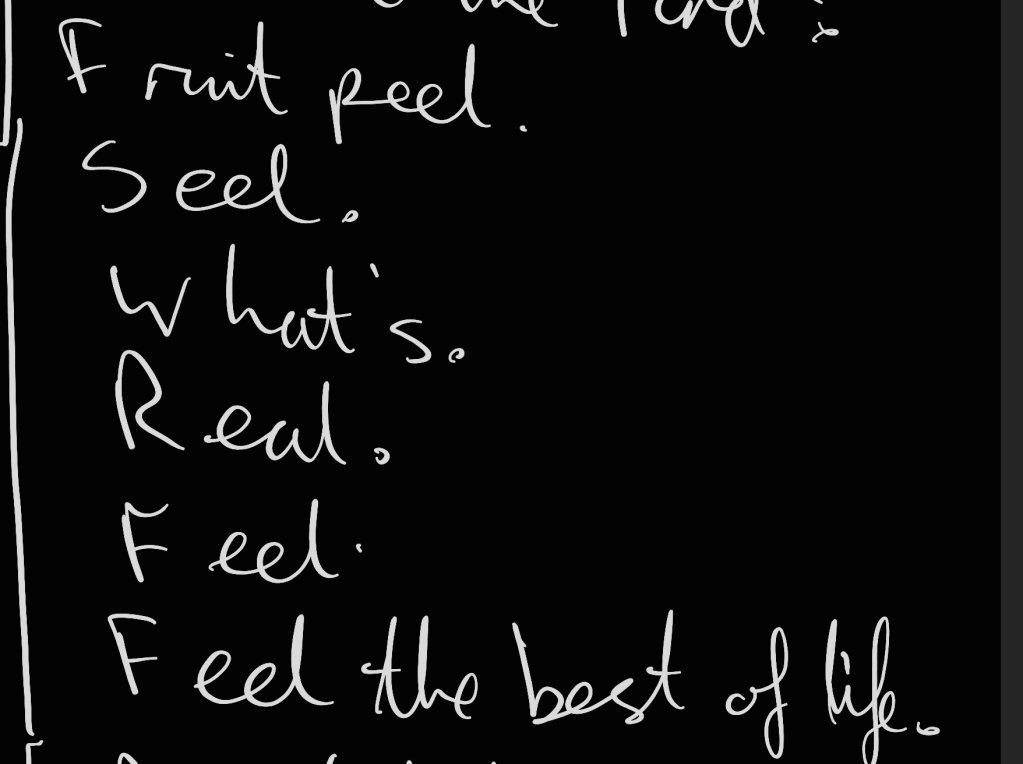 the
Fruit peel.
Seel.
What's.
Real.
Feel.
Feel the best of life.